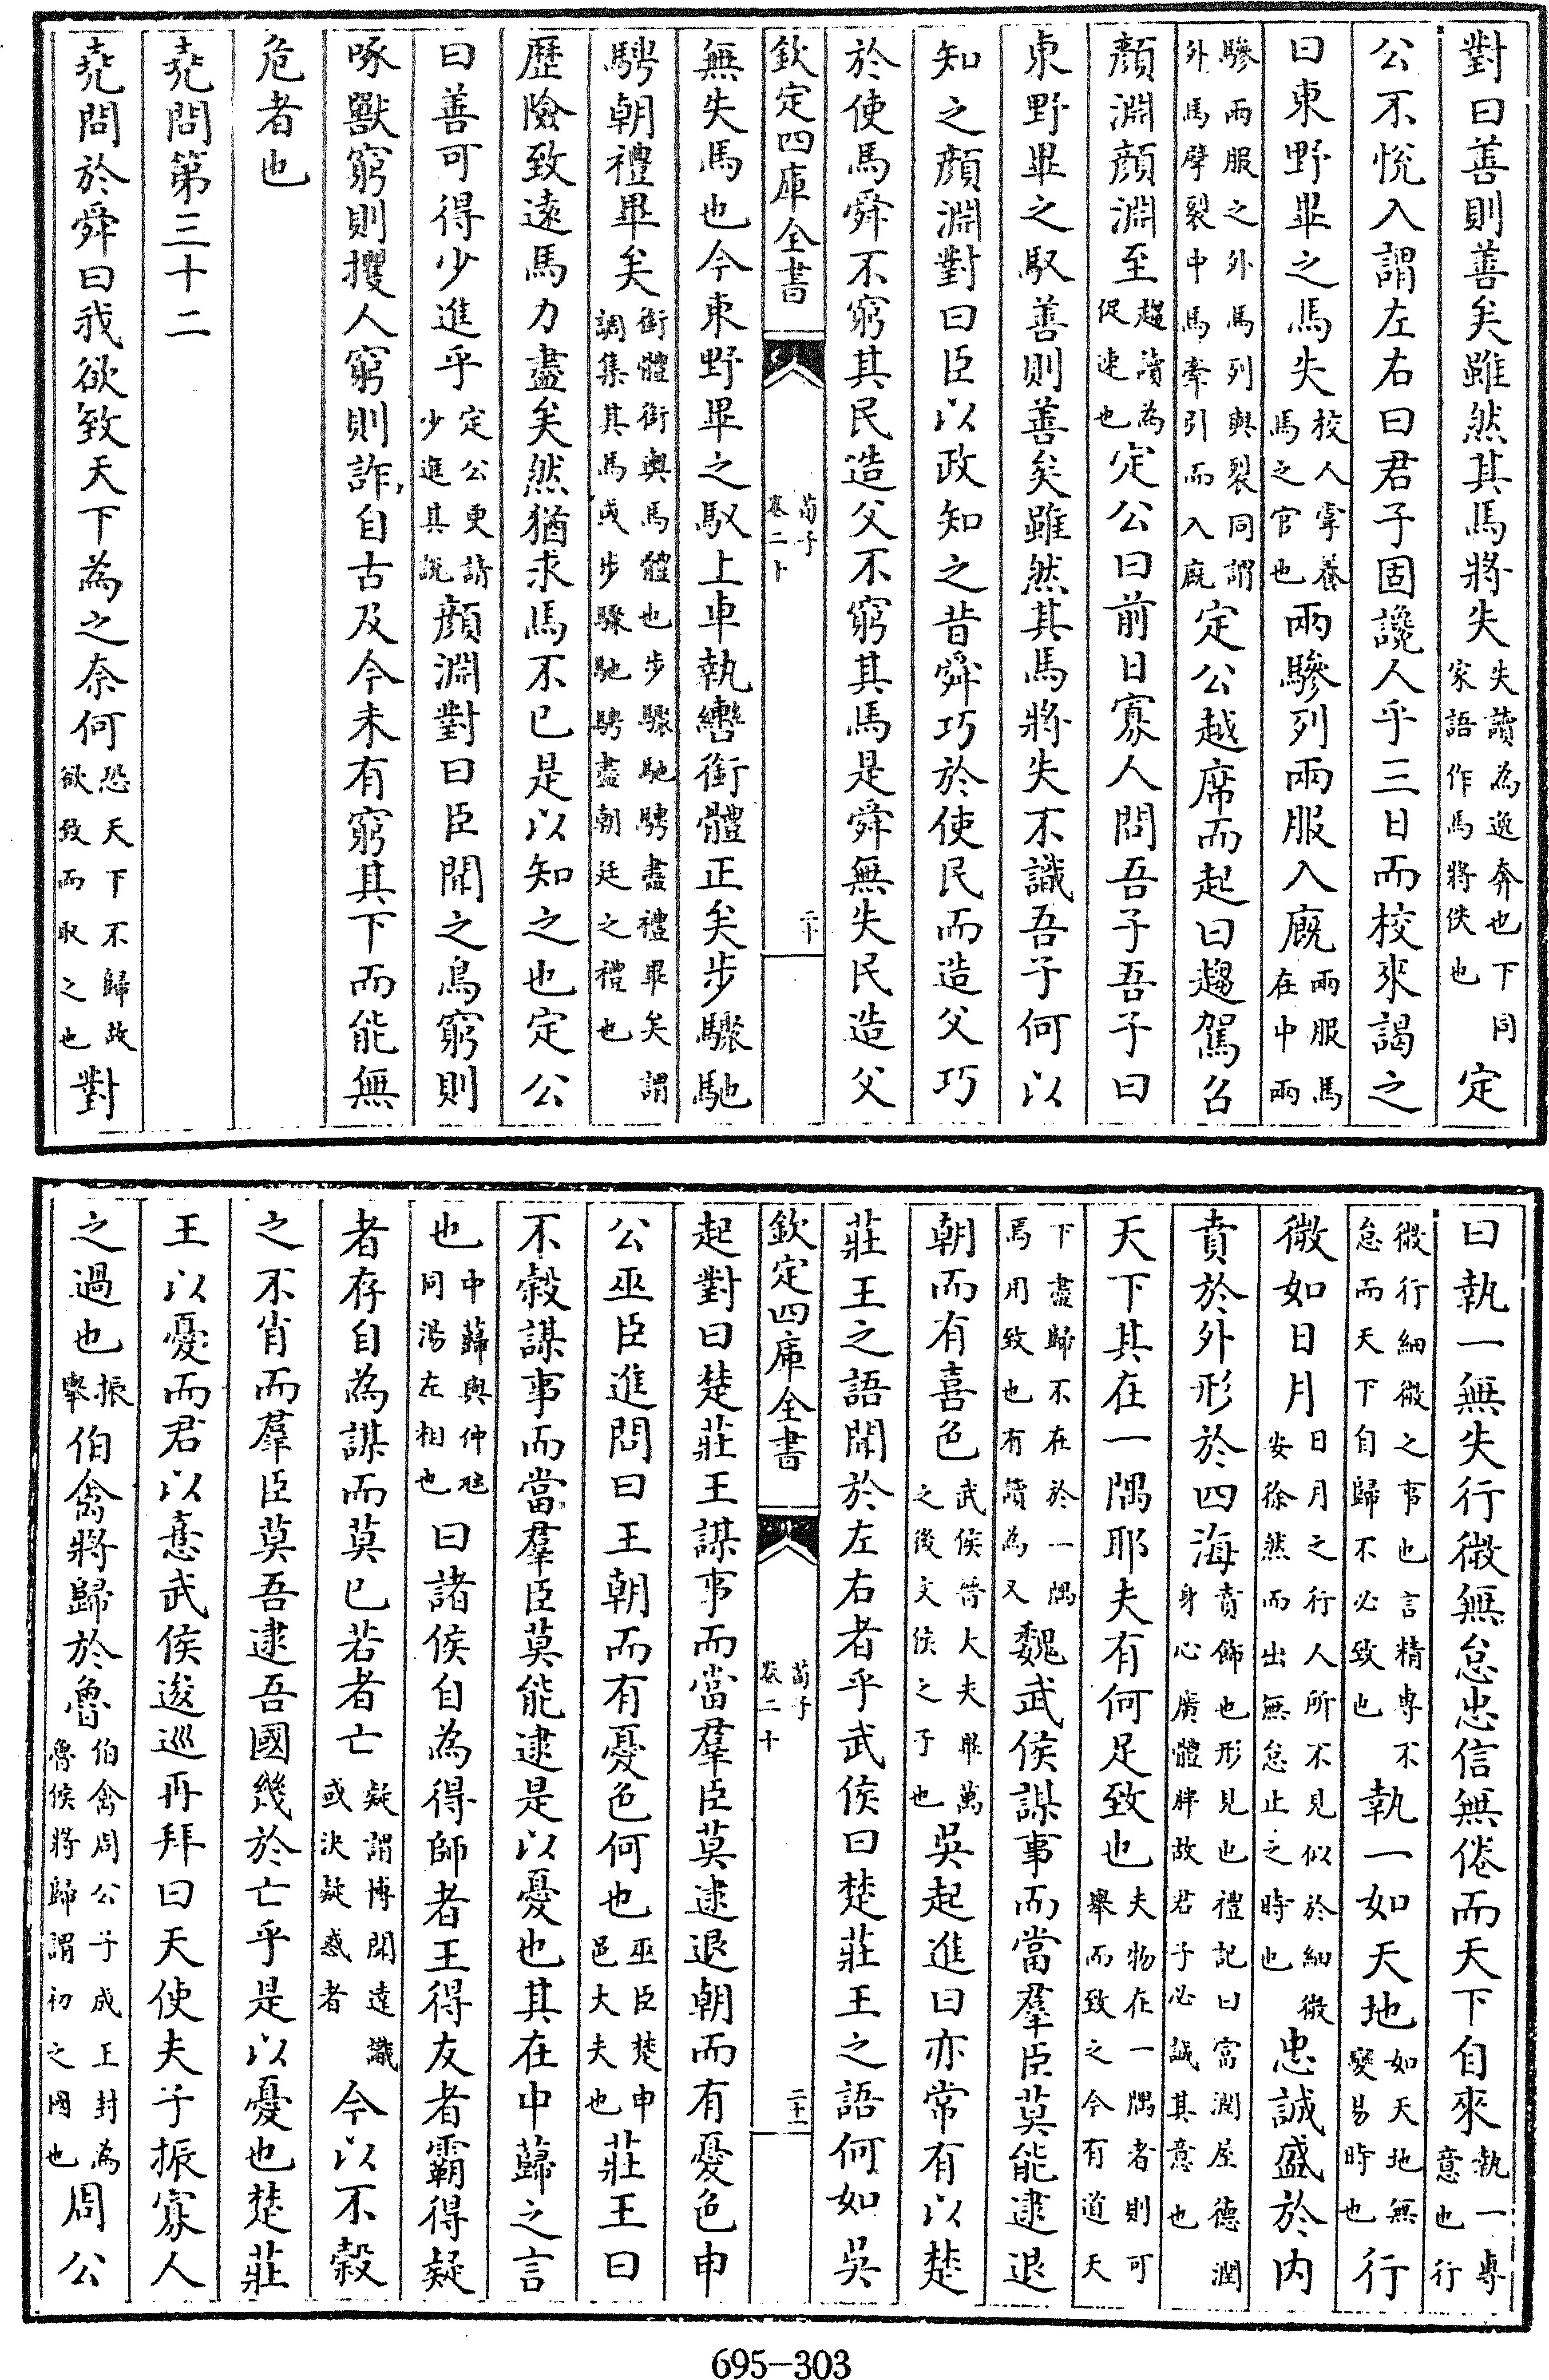 對曰善則善矣雖然其馬將失失讀為逸奔也下同家語作馬將佚也定
公不悅入謂左右曰君子固讒人乎三日而校來謁之
曰東野畢之馬失校人掌養馬之官也兩驂列兩服入廐兩服馬在中兩
驂兩服之外馬列與裂同謂外馬擘裂中馬牽引而入廐定公越席而起曰趨駕召
顏淵顏淵至趨讀為促速也定公曰前日寡人問吾子吾子曰
東野畢之馭善則善矣雖然其馬將失不識吾子何以
知之顏淵對曰臣以政知之昔舜巧於使民而造父巧
於使馬舜不窮其民造父不窮其馬是舜無失民造父
欽定四庫全書 荀子卷二十 二十
無失馬也今東野畢之馭上車執轡銜體正矣步驟馳
騁朝禮畢矣銜體銜與馬體也步驟馳騁盡禮畢矣謂調集其馬或步驟馳騁盡朝廷之禮也
歷險致遠馬力盡矣然猶求馬不已是以知之也定公
曰善可得少進乎定公更請少進其說顏淵對曰臣聞之鳥窮則
啄獸窮則攫人窮則詐自古及今未有窮其下而能無
危者也
堯問第三十二
堯問於舜曰我欲致天下為之奈何恐天下不歸故欲致而取之也對
曰執一無失行微無怠忠信無倦而天下自來執一專意也行
微行細微之事也言精專不怠而天下自歸不必致也執一如天地如天地無變易時也行
微如日月日月之行人所不見似於細微安徐然而出無怠止之時也忠誠盛於內
賁於外形於四海賁飾也形見也禮記曰富潤屋德潤身心廣體胖故君子必誠其意也
天下其在一隅耶夫有何足致也夫物在一隅者則可舉而致之今有道天
下盡歸不在於一隅焉用致也有讀為又魏武侯謀事而當羣臣莫能逮退
朝而有喜色武侯晉大夫畢萬之後文侯之子也吳起進曰亦常有以楚
莊王之語聞於左右者乎武侯曰楚莊王之語何如吳
欽定四庫全書 荀子卷二十 二十一
起對曰楚莊王謀事而當羣臣莫逮退朝而有憂色申
公巫臣進問曰王朝而有憂色何也巫臣楚申邑大夫也莊王曰
不穀謀事而當羣臣莫能逮是以憂也其在中蘬之言
也中蘬與仲虺同湯左相也曰諸侯自為得師者王得友者霸得疑
者存自為謀而莫已若者亡疑謂博聞達識或決疑惑者今以不穀
之不肖而羣臣莫吾逮吾國幾於亡乎是以憂也楚莊
王以憂而君以憙武侯逡巡再拜曰天使夫子振寡人
之過也振舉伯禽將歸於魯伯禽周公子成王封為魯侯將歸謂初之國也周公
695-303